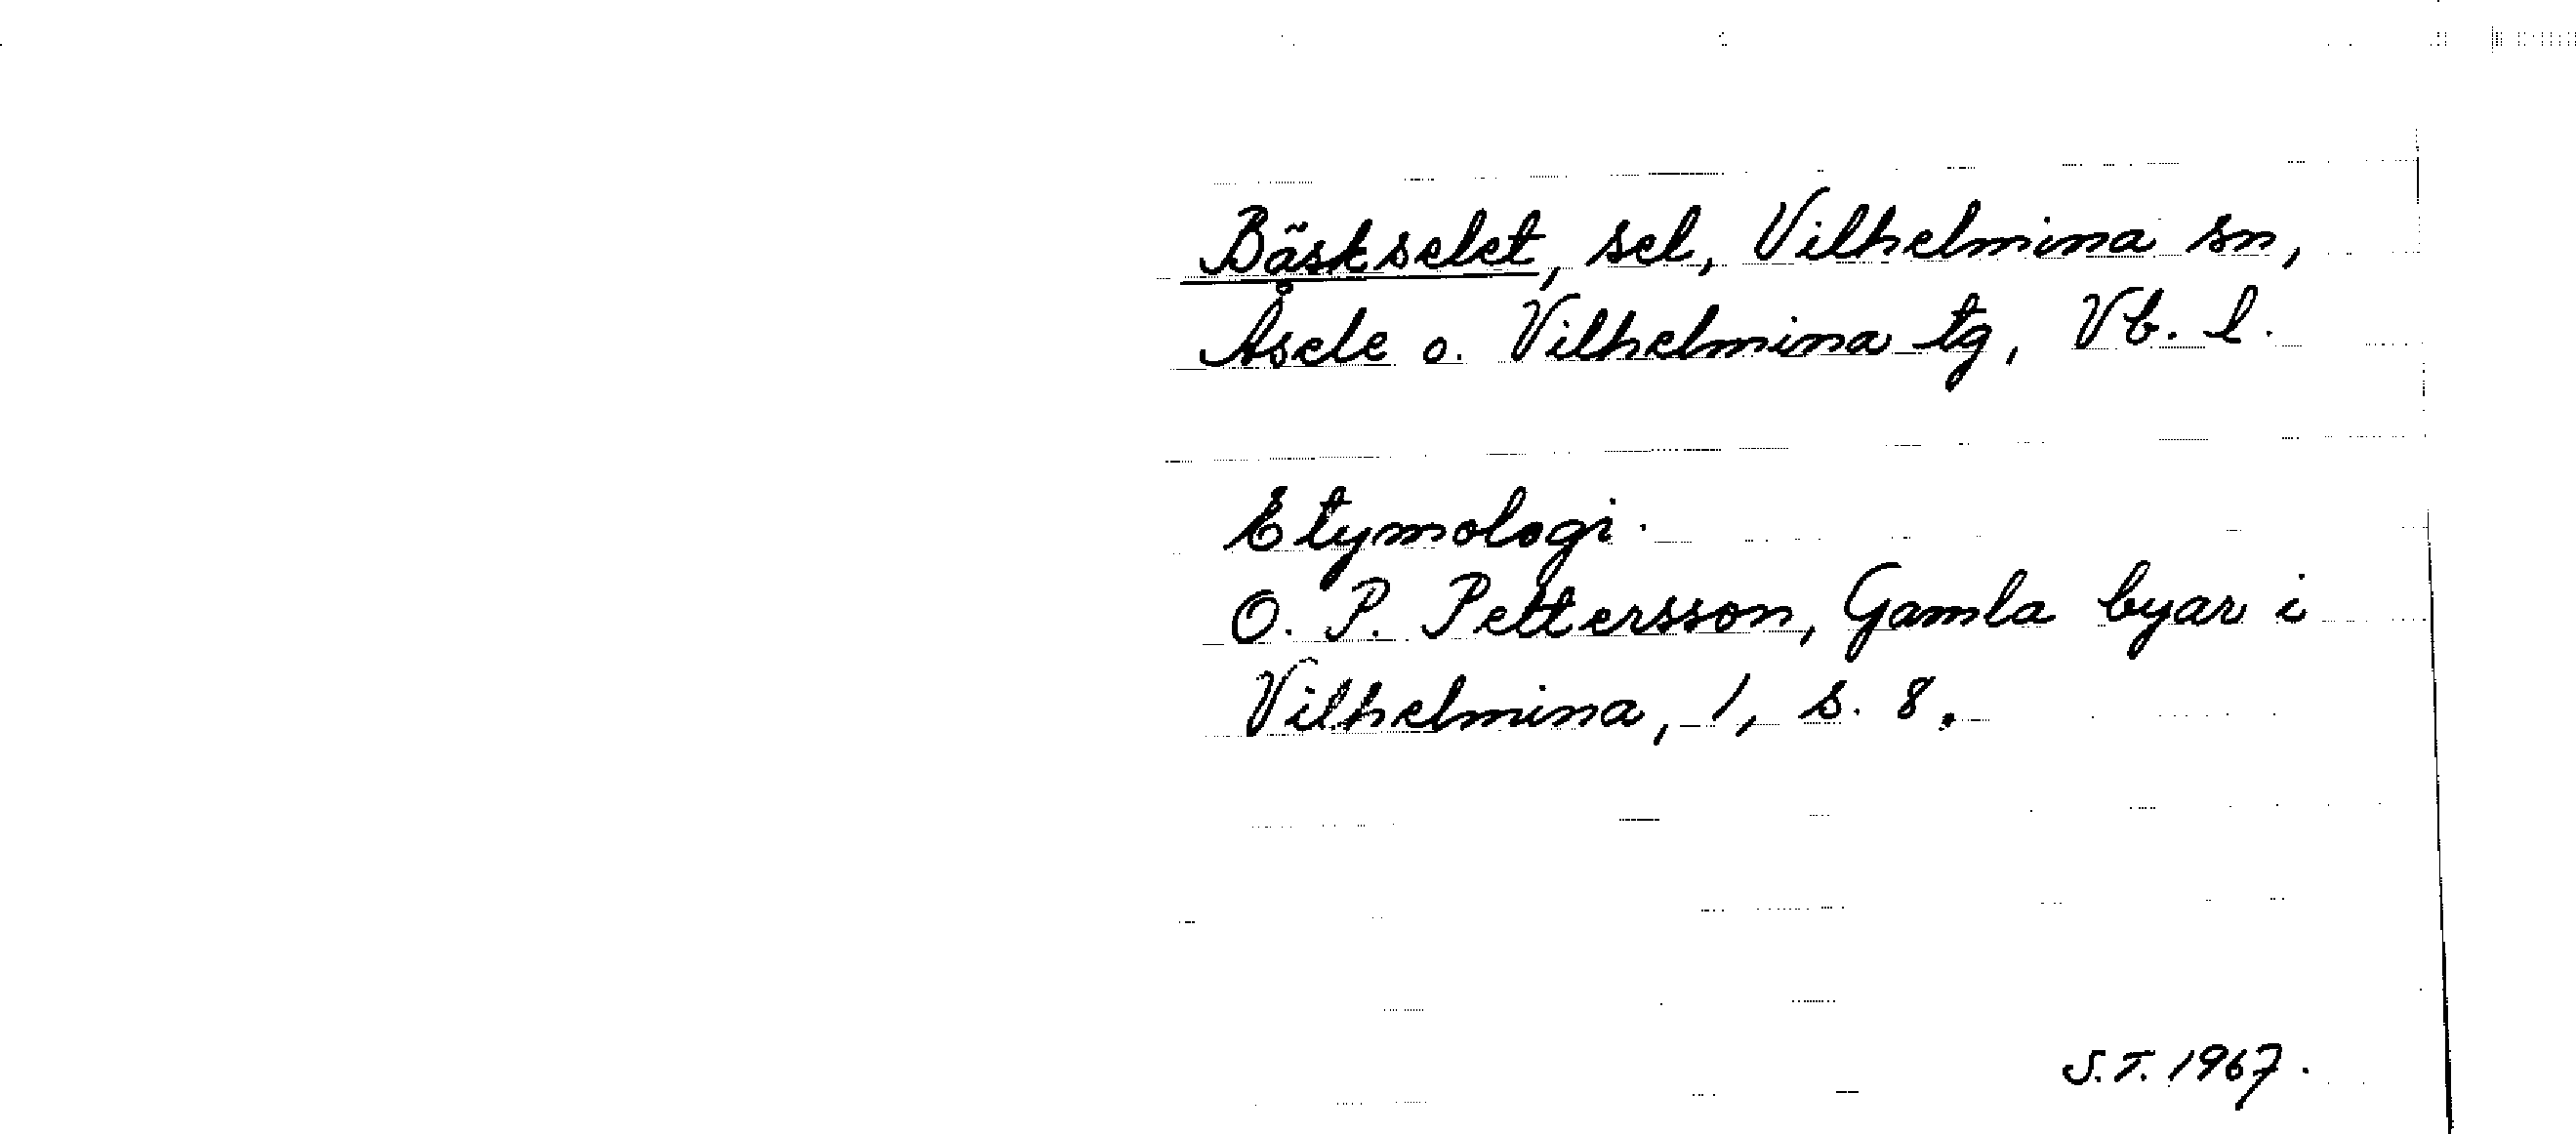 Bäskselet, sel, Vilhelmina sn,
Åsele o. Vilhelmina tg, Vb. l.
Etymologi.
O. P. Pettersson, Gamla byar i
Vilhelmina, 1, s. 8.
S.T. 1967.